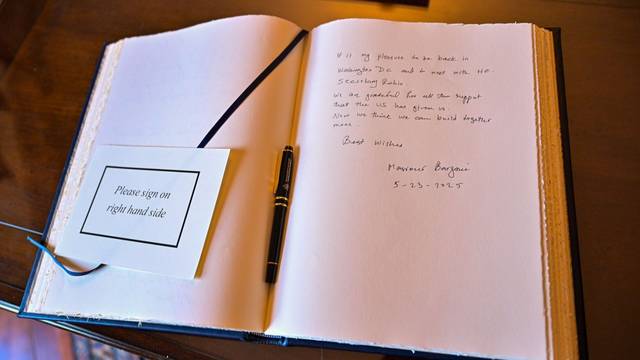 Please sign on
right hand side
It is my pleasure to be back in
Washington DC and to meet with HE.
Secretary Rubio
We are grateful for all the support
that the US has given us.
Now we think we can build together
more.
Best Wishes
Masrour Barzani
5-23-2025